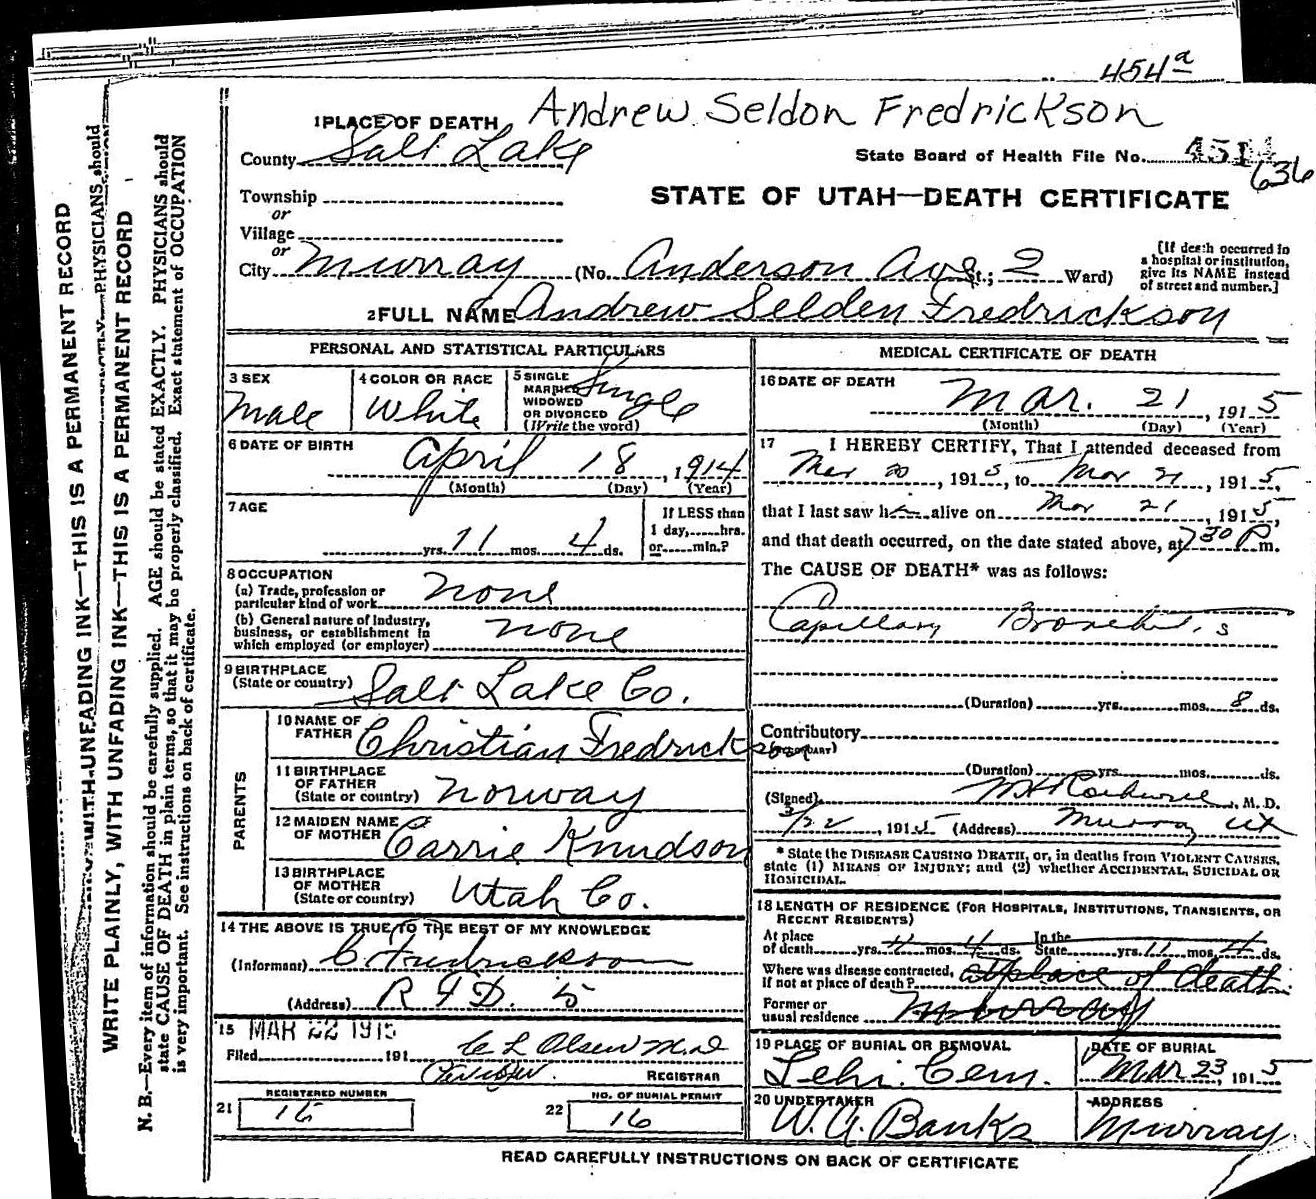 454a
Andrew Seldon Fredrickson
1 PLACE OF DEATH
County Salt Lake
State Board of Health File No. 4514
636
Township
or
Village
or
STATE OF UTAH—DEATH CERTIFICATE
City Murray (No. Anderson Ave St.; 2 Ward)
[If death occurred in
a hospital or institution,
give its NAME instead
of street and number.]
2 FULL NAME Andrew Selden Fredrickson
PERSONAL AND STATISTICAL PARTICULARS
3 SEX
Male
4 COLOR OR RACE
White
5 SINGLE
MARRIED
WIDOWED
OR DIVORCED
(Write the word)
Single
6 DATE OF BIRTH
April 18, 1914
(Month) (Day) (Year)
7 AGE
yrs. 11 mos. 4 ds.
If LESS than
1 day, hrs.
or min.?
8 OCCUPATION
(a) Trade, profession or
particular kind of work none
(b) General nature of industry,
business, or establishment in
which employed (or employer) none
9 BIRTHPLACE
(State or country) Salt Lake Co.
PARENTS
10 NAME OF
FATHER Christian Fredrickson
11 BIRTHPLACE
OF FATHER
(State or country) Norway
12 MAIDEN NAME
OF MOTHER Carrie Knudson
13 BIRTHPLACE
OF MOTHER
(State or country) Utah Co.
14 THE ABOVE IS TRUE TO THE BEST OF MY KNOWLEDGE
(Informant) C. Fredrickson
(Address) R F D. 5
15 MAR 22 1915
Filed 191
C L Olsen M.D
REGISTRAR
21 REGISTERED NUMBER
16
22 NO. OF BURIAL PERMIT
16
MEDICAL CERTIFICATE OF DEATH
16 DATE OF DEATH
Mar. 21, 1915
(Month) (Day) (Year)
17 I HEREBY CERTIFY, That I attended deceased from
Mar 20, 1915, to Mar 21, 1915,
that I last saw h alive on Mar 21, 1915,
and that death occurred, on the date stated above, at 7 30 P m.
The CAUSE OF DEATH* was as follows:
Capillary Bronchitis
(Duration) yrs. mos. 8 ds.
Contributory
(SECONDARY)
(Duration) yrs. mos. ds.
(Signed) , M. D.
3/22, 1915 (Address) Murray Ut
* State the DISEASE CAUSING DEATH, or, in deaths from VIOLENT CAUSES,
state (1) MEANS OF INJURY; and (2) whether ACCIDENTAL, SUICIDAL OR
HOMICIDAL.
18 LENGTH OF RESIDENCE (FOR HOSPITALS, INSTITUTIONS, TRANSIENTS, OR
RECENT RESIDENTS)
At place
of death yrs. 11 mos. 4 ds. In the
State yrs. 11 mos. 4 ds.
Where was disease contracted,
if not at place of death? at place of death.
Former or
usual residence Murray
19 PLACE OF BURIAL OR REMOVAL
Lehi. Cem.
DATE OF BURIAL
Mar 23, 1915
20 UNDERTAKER
W. G. Banks
ADDRESS
Murray
READ CAREFULLY INSTRUCTIONS ON BACK OF CERTIFICATE
WITH UNFADING INK—THIS IS A PERMANENT RECORD
PHYSICIANS should
WRITE PLAINLY, WITH UNFADING INK—THIS IS A PERMANENT RECORD
N. B.—Every item of information should be carefully supplied. AGE should be stated EXACTLY. PHYSICIANS should
state CAUSE OF DEATH in plain terms, so that it may be properly classified. Exact statement of OCCUPATION
is very important. See instructions on back of certificate.